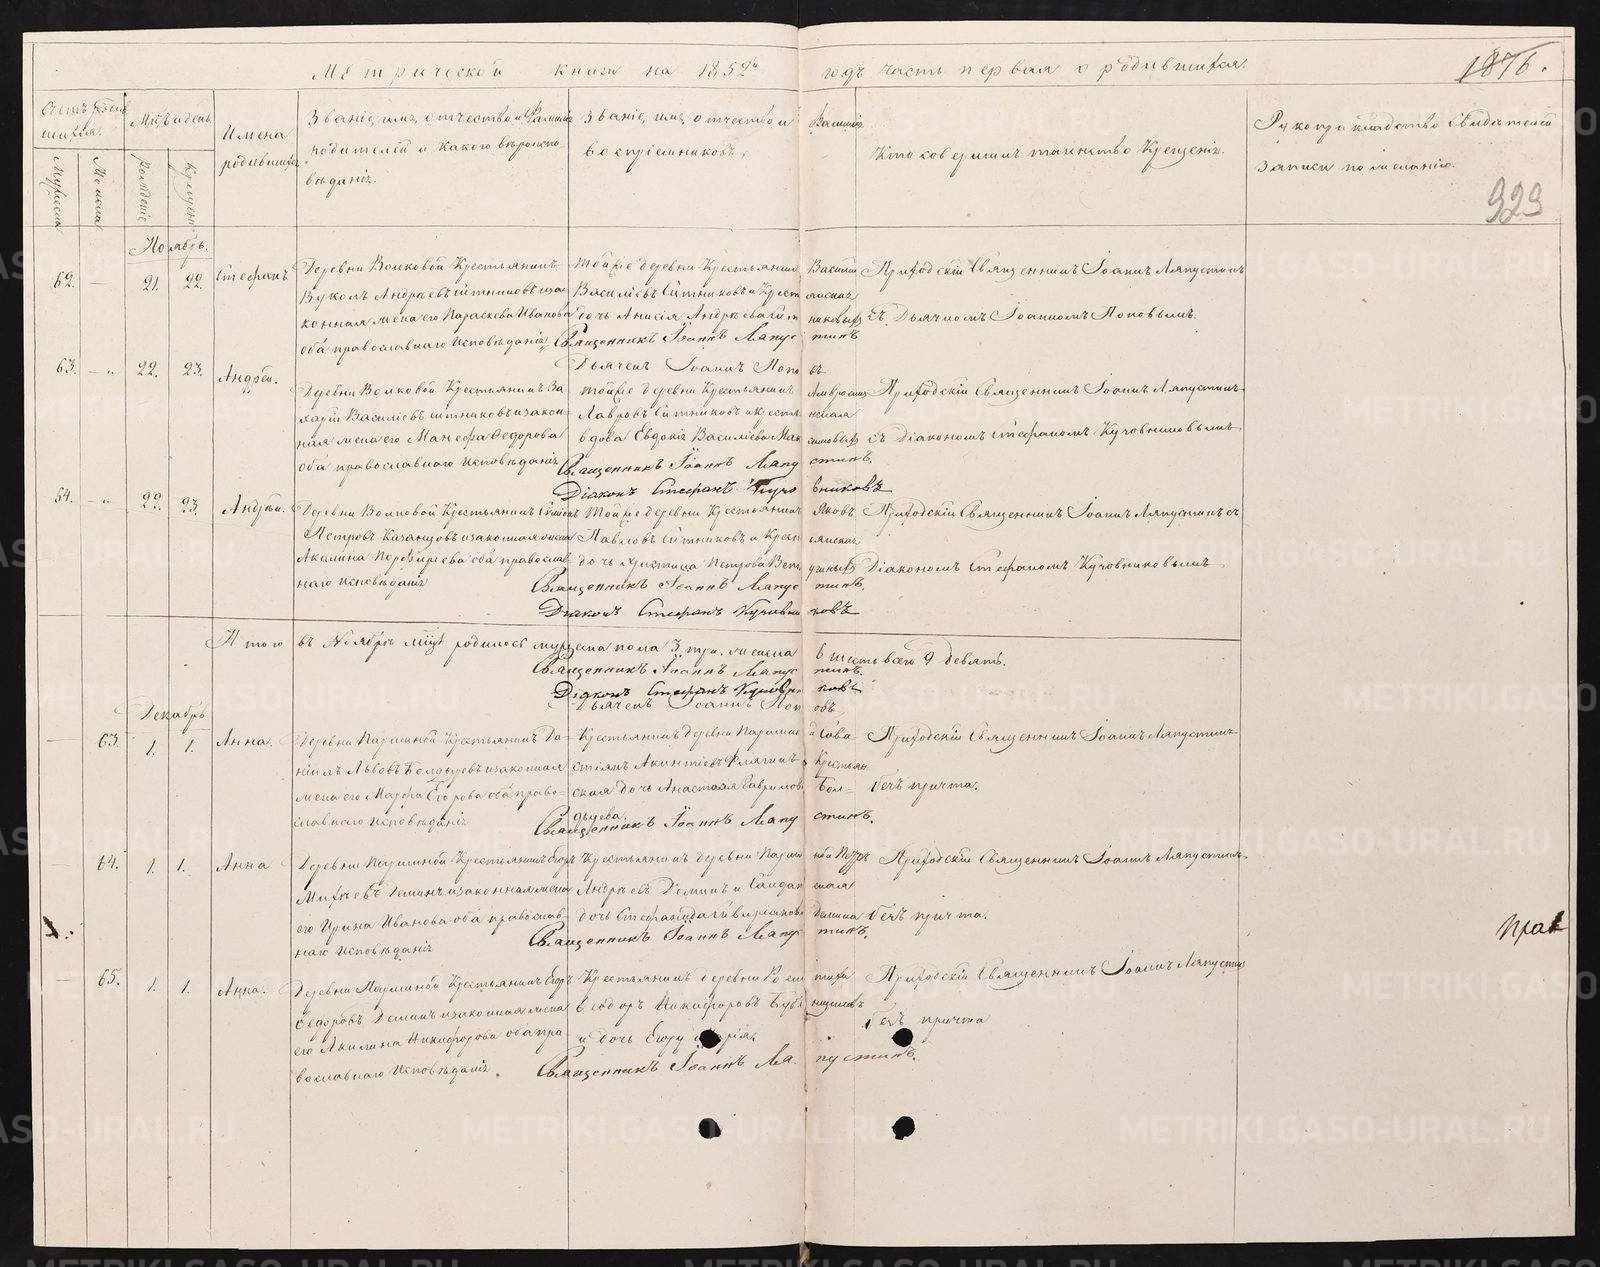 Метрической книги на 1852й годъ часть первая о родившихся.
1876.
Счетъ родив
шихся.
Мужеска
Женска
Мѣсяцъ и день
рожденіе
крещеніе
Имена
родившихся
Званіе, имя, отчество и Фамилія
родителей и какого вѣроиспо
вѣданія.
Званіе, имя, отчество и Фамилія
воспріемниковъ.
Кто совершилъ таинство Крещенія.
Рукоприкладство Свидѣтелей
записи по желанію.
929
Ноябрь.
62. — 21. 22. Стефанъ
Деревни Волковой Крестьянинъ
Вуколъ Андреевъ Ситниковъ и за
конная жена его Параскева Иванова
оба православнаго Исповѣданія
Той же деревни Крестьянинъ Василій
Василіевъ Ситниковъ и Крестьянская
дочь Анисія Андреева Ситниковыхъ
Священникъ Іоаннъ Ляпустинъ
Дьячекъ Іоаннъ Поповъ
Приходскій Священникъ Іоаннъ Ляпустинъ
съ Дьячкомъ Іоанномъ Поповымъ.
63. — 22. 23. Андрей.
Деревни Волковой Крестьянинъ За
харій Василіевъ Ситниковъ и закон
ная жена его Манефа Федорова
оба православнаго Исповѣданія
Той же деревни Крестьянинъ Амвросій
Лавровъ Ситниковъ и Крестьянская
вдова Евдокія Василіева
Священникъ Іоаннъ Ляпустинъ.
Діаконъ Стефанъ
Приходскій Священникъ Іоаннъ Ляпустинъ
съ Діакономъ Стефаномъ Кучовниковымъ
64. — 22. 23. Андрей.
Деревни Волковой Крестьянинъ
Петровъ Казанцовъ и законная жена
Акилина Порфирьева оба православ
наго исповѣданія
Той же деревни Крестьянинъ Яковъ
Павловъ Ситниковъ и Крестьянская
дочь Христина Петрова
Священникъ Іоаннъ Ляпустинъ.
Діаконъ Стефанъ Кучовниковъ
Приходскій Священникъ Іоаннъ Ляпустинъ съ
Діакономъ Стефаномъ Кучовниковымъ
Итого въ Ноябрѣ м-цѣ родилось мужеска пола 3 три. женска 6 шесть всего 9 девять.
Священникъ Іоаннъ Ляпустинъ.
Діаконъ Стефанъ Кучовниковъ
Дьячекъ Іоаннъ Поповъ
Декабрь
— 63. 1. 1. Анна.
Деревни Паршиной Крестьянинъ Да
ніилъ Львовъ Болдыревъ и законная
жена его Марфа Егорова оба право
славнаго исповѣданія
Крестьянинъ деревни Паршиной Сава
стіянъ Акинтіевъ Флягинъ Крестьян
ская дочь Анастасія Гаврилова Бол
дырева.
Священникъ Іоаннъ Ляпустинъ.
Приходскій Священникъ Іоаннъ Ляпустинъ
безъ причта.
— 64. 1. 1. Анна
Деревни Паршиной Крестьянинъ Егоръ
Михѣевъ Деминъ и законная жена
его Ирина Иванова оба православ
наго Исповѣданія
Крестьянинъ деревни Паршиной Петръ
Андреевъ Деминъ и
дочь Степанида Демина
Священникъ Іоаннъ Ляпустинъ.
Приходскій Священникъ Іоаннъ Ляпустинъ
безъ причта.
— 65. 1. 1. Анна.
Деревни Паршиной Крестьянинъ Егоръ
Федоровъ Деминъ и законная жена
его Акилина Никифорова оба пра
вославнаго Исповѣданія.
Крестьянинъ деревни
Ѳеодоръ Никифоровъ
и дочь Егору Марія.
Священникъ Іоаннъ Ляпустинъ.
Приходскій Священникъ Іоаннъ Ляпустинъ
безъ причта
METRIKI.GASO-URAL.RU